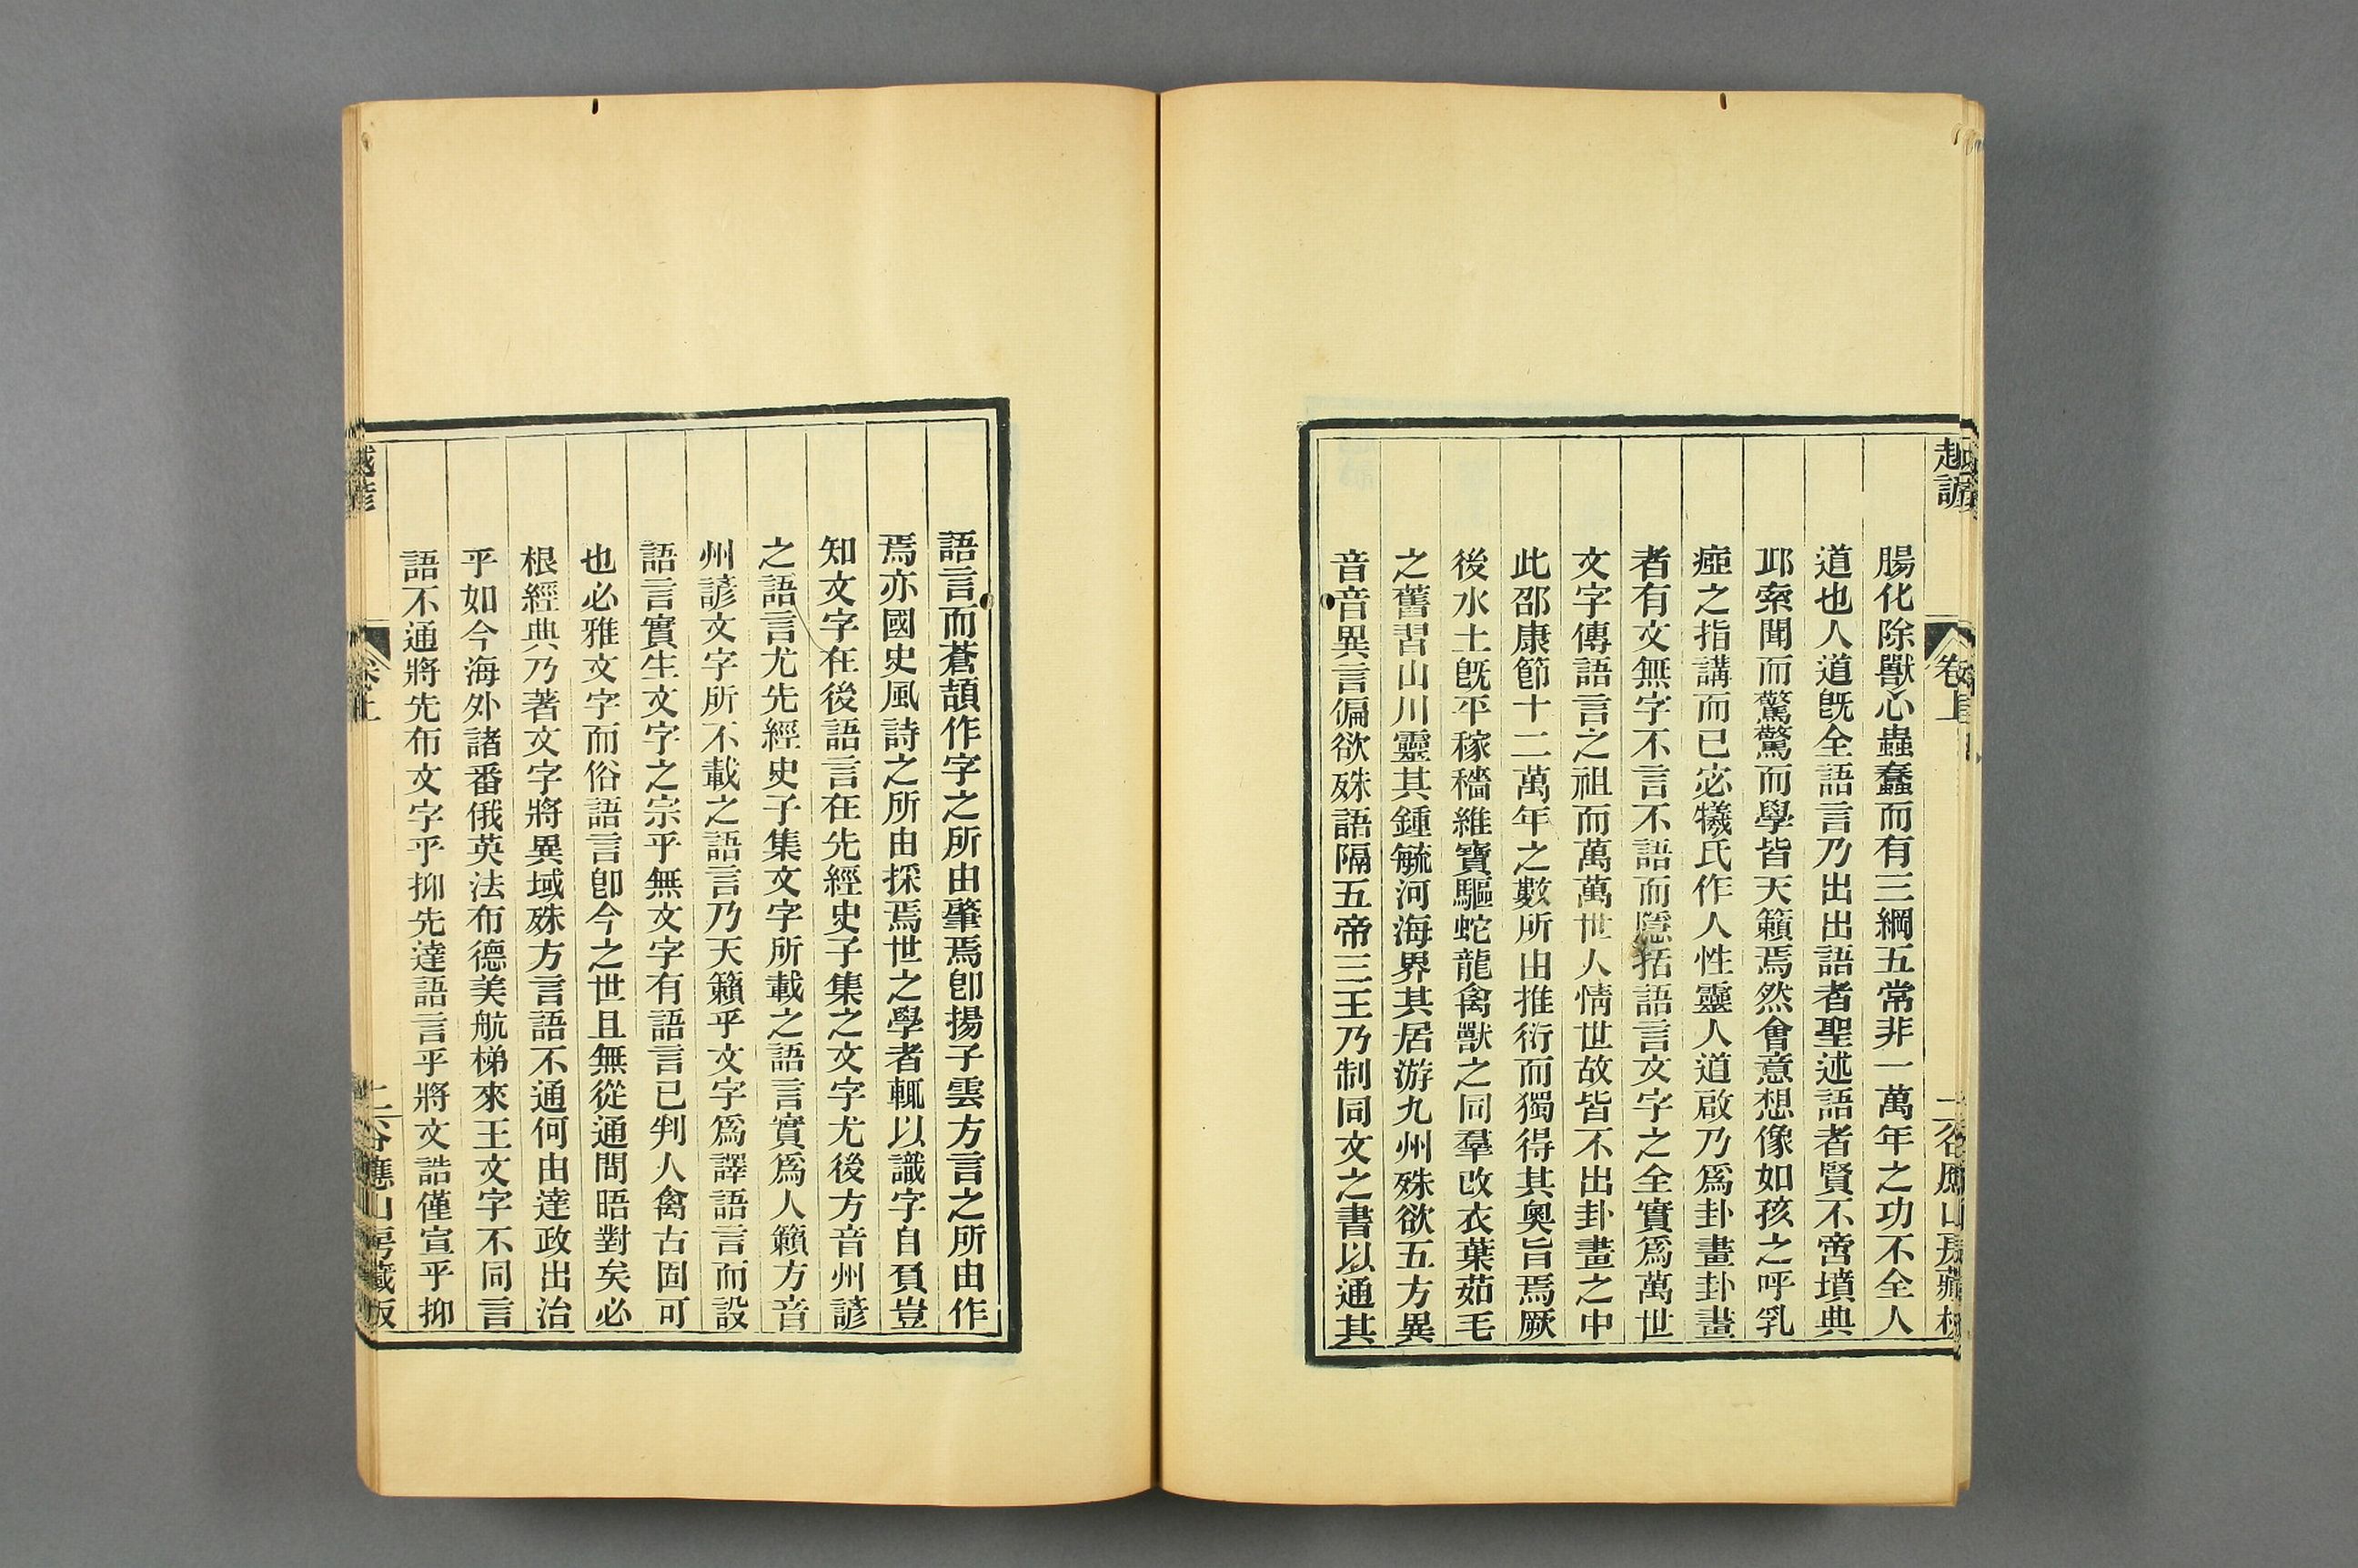 越諺
卷上
腸化除獸心蟲蠢而有三綱五常非一萬年之功不全人
道也人道旣全語言乃出出語者聖述語者賢不啻墳典
邱索聞而驚驚而學皆天籟焉然會意想像如孩之呼乳
瘂之指講而已宓犧氏作人性靈人道啟乃爲卦畫卦畫
者有文無字不言不語而隱括語言文字之全實爲萬世
文字傳語言之祖而萬萬世人情世故皆不出卦畫之中
此邵康節十二萬年之數所由推衍而獨得其奧旨焉厥
後水土旣平稼穡維寶驅蛇龍禽獸之同羣改衣葉茹毛
之舊習山川靈其鍾毓河海界其居游九州殊欲五方異
音音異言偏欲殊語隔五帝三王乃制同文之書以通其
語言而蒼頡作字之所由肇焉卽揚子雲方言之所由作
焉亦國史風詩之所由採焉世之學者輒以識字自負豈
知文字在後語言在先經史子集之文字尤後方音州諺
之語言尤先經史子集文字所載之語言實爲人籟方音
州諺文字所不載之語言乃天籟乎文字爲譯語言而設
語言實生文字之宗乎無文字有語言已判人禽古固可
也必雅文字而俗語言卽今之世且無從通問晤對矣必
根經典乃著文字將異域殊方言語不通何由達政出治
乎如今海外諸番俄英法布德美航梯來王文字不同言
語不通將先布文字乎抑先達語言乎將文誥僅宣乎抑
卷上
谷應山房藏版